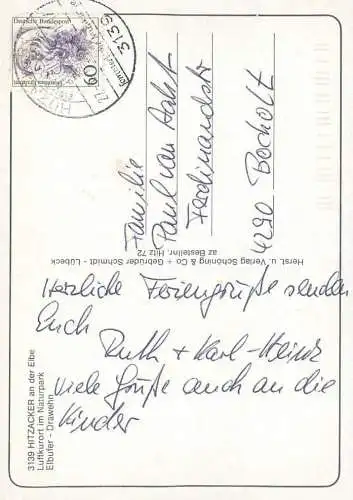 Deutsche Bundespost
60
3139
Familie
Paul van Aakst
Ferdinandstr
4290 Bocholt
Herst. u. Verlag Schöning & Co + Gebrüder Schmidt - Lübeck
az Bestellnr. Hitz 72
Herzliche Feriengrüße senden
Euch
Ruth + Karl-Heinz
Viele Grüße auch an die
Kinder
3139 HITZACKER an der Elbe
Luftkurort im Naturpark
Elbufer - Drawehn